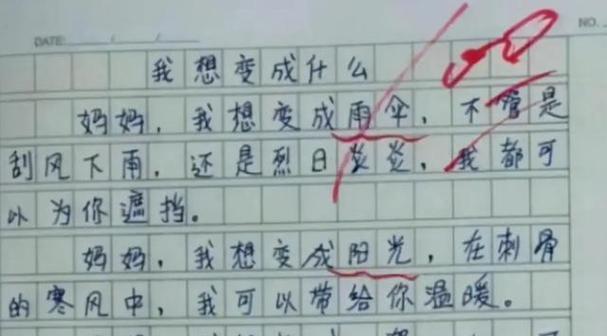 NO.
DATE: / /
我想变成什么
妈妈，我想变成雨伞，不管是
刮风下雨，还是烈日炎炎，我都可
以为你遮挡。
妈妈，我想变成阳光，在刺骨
的寒风中，我可以带给你温暖。